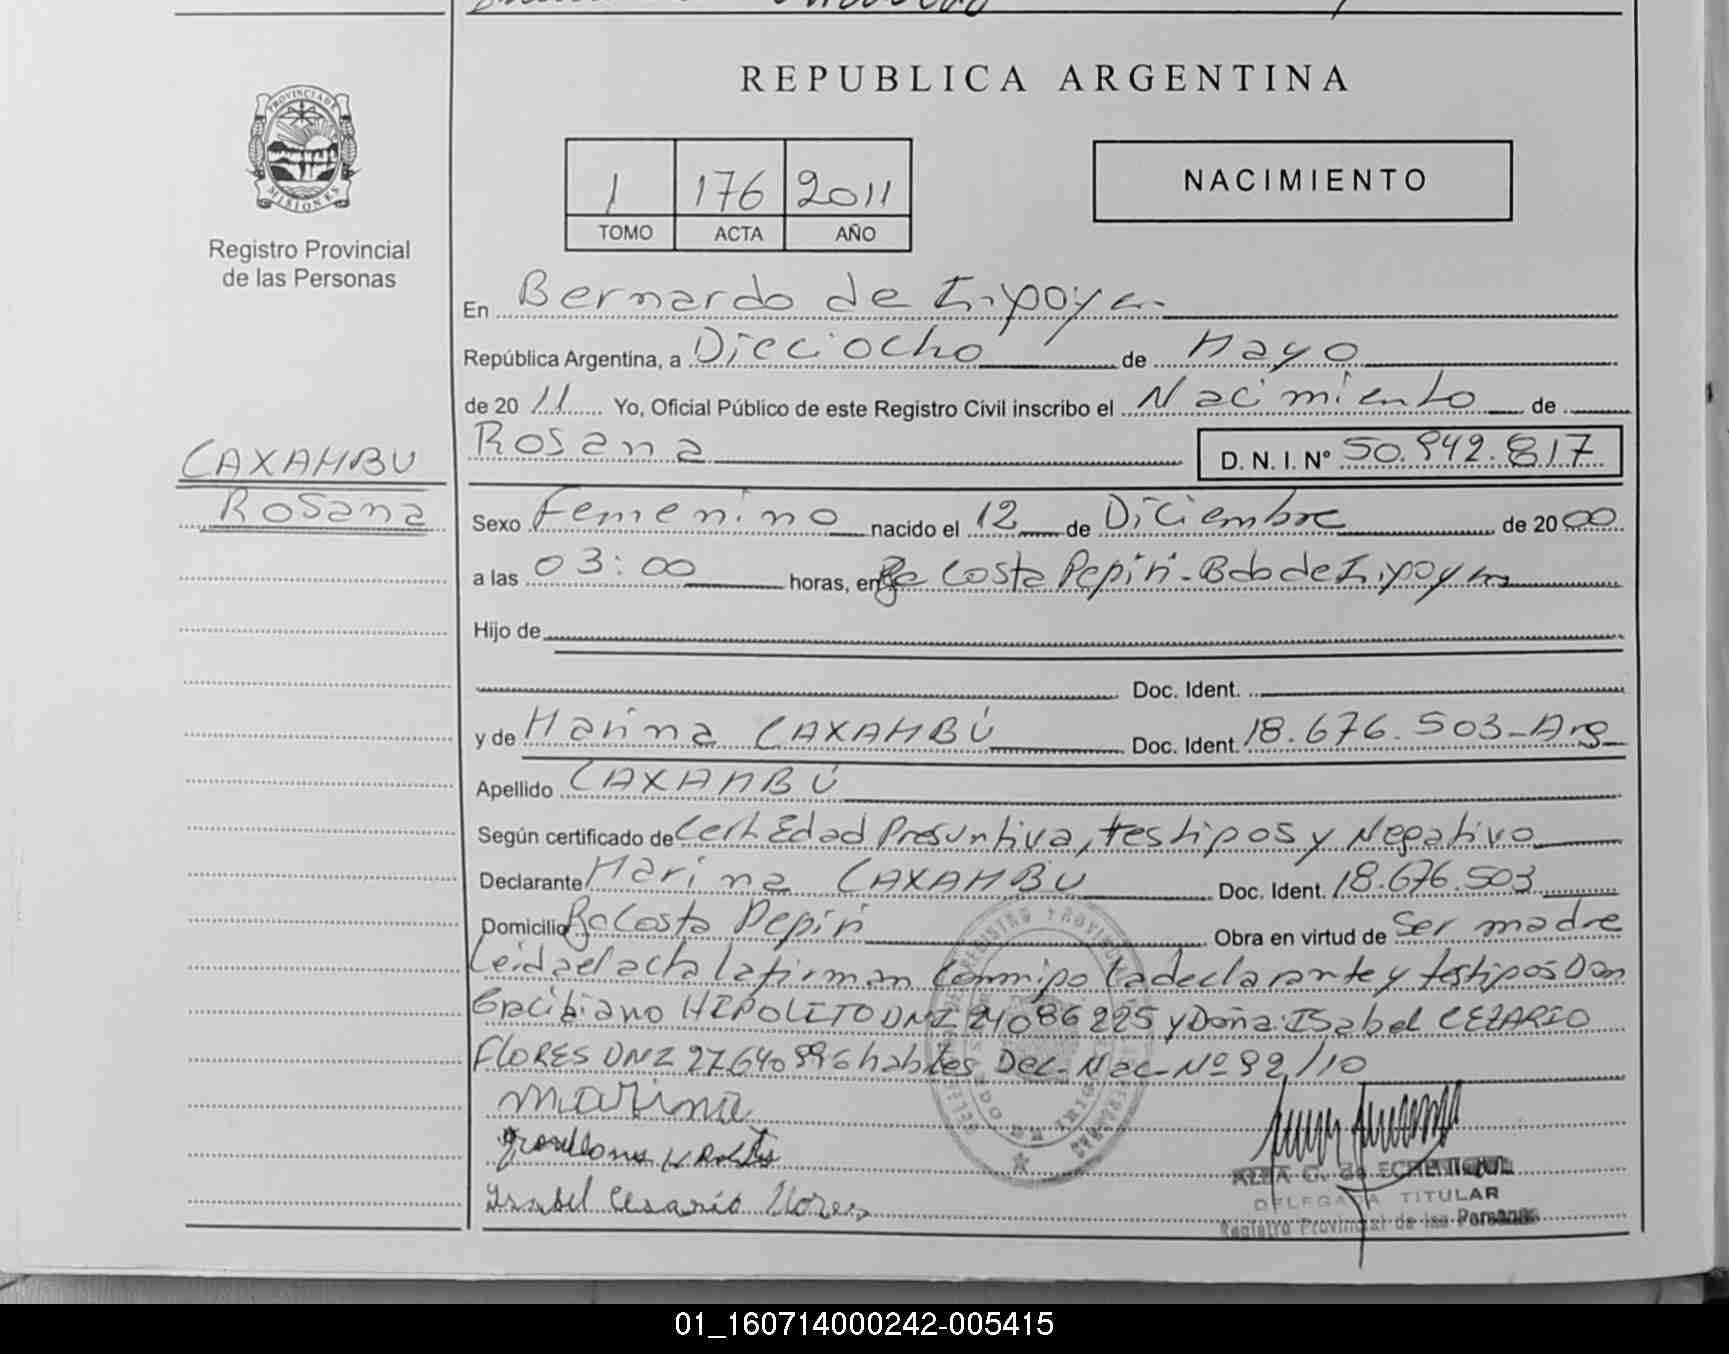 PROVINCIA DE
MISIONES
Registro Provincial
de las Personas
CAXAMBU
Rosana
REPUBLICA ARGENTINA
1 176 2011
TOMO ACTA AÑO
NACIMIENTO
En Bernardo de Irigoyen
República Argentina, a Dieciocho de Mayo
de 2011 Yo, Oficial Público de este Registro Civil inscribo el Nacimiento de
Rosana D. N. I. Nº 50.942.817
Sexo Femenino nacido el 12 de Diciembre de 2000
a las 03:00 horas, en Bo Costa Pepiri - Bdo de Irigoyen
Hijo de
Doc. Ident.
y de Marina CAXAMBÚ Doc. Ident. 18.676.503-Arg
Apellido CAXAMBÚ
Según certificado de Cert. Edad Presuntiva, testigos y Negativo
Declarante Marina CAXAMBU Doc. Ident. 18.676.503
Domicilio Bo Costa Pepiri Obra en virtud de Ser madre
Leida el acta la firman conmigo la declarante y testigos Don
HIPOLITO DNI 24086225 y Doña: Isabel CEZARIO
FLORES DNI 27640996 habiles Dec. Nac. Nº 92/10
Marina
Isabel Cesario Flores
DELEGADA TITULAR
Registro Provincial de las Personas
01_160714000242-005415